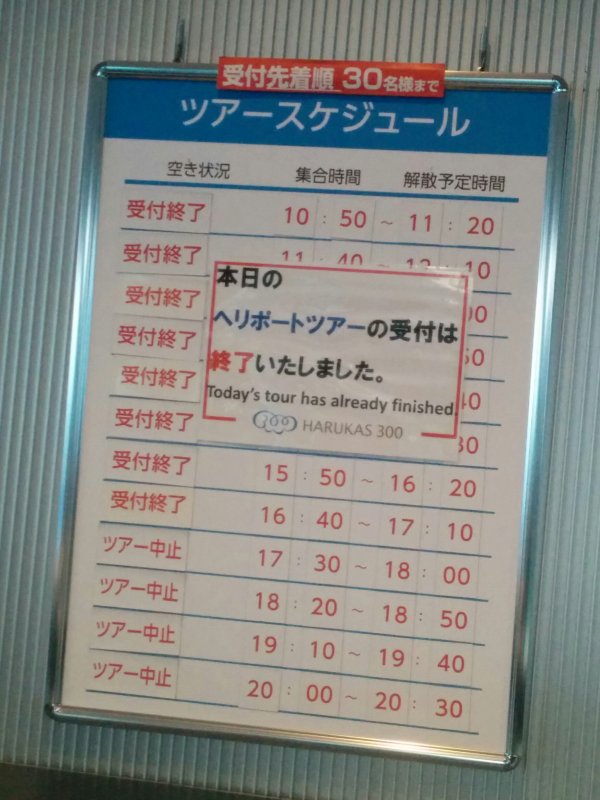 受付先着順 30名様まで
ツアースケジュール
空き状況 集合時間 解散予定時間
受付終了 10 : 50 ~ 11 : 20
受付終了 11 : 40 ~ 12 : 10
受付終了
受付終了
受付終了
受付終了
受付終了 15 : 50 ~ 16 : 20
受付終了 16 : 40 ~ 17 : 10
ツアー中止 17 : 30 ~ 18 : 00
ツアー中止 18 : 20 ~ 18 : 50
ツアー中止 19 : 10 ~ 19 : 40
ツアー中止 20 : 00 ~ 20 : 30
本日の
ヘリポートツアーの受付は
終了いたしました。
Today's tour has already finished.
HARUKAS 300